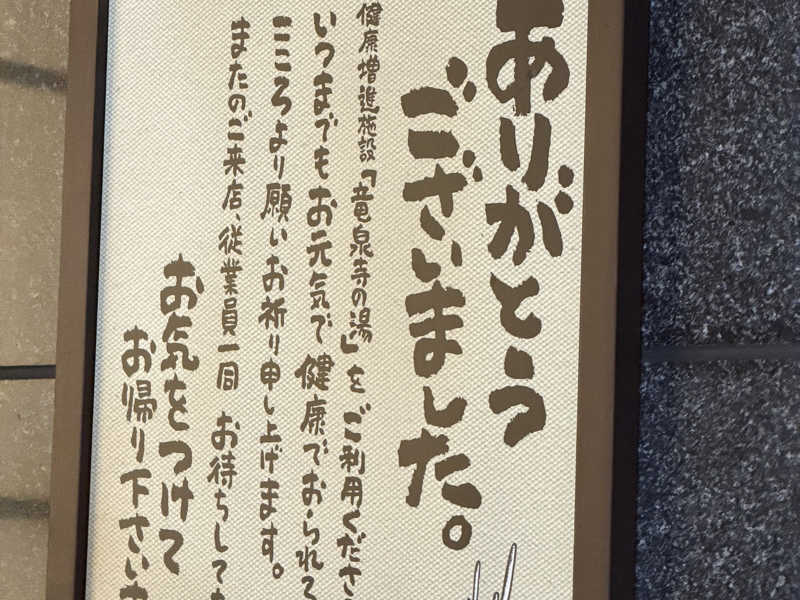 ありがとう
ございました。
健康増進施設「竜泉寺の湯」をご利用くださ
いつまでもお元気で健康でおられる
こころより願いお祈り申し上げます。
またのご来店、従業員一同 お待ちして
お気をつけて
お帰り下さい